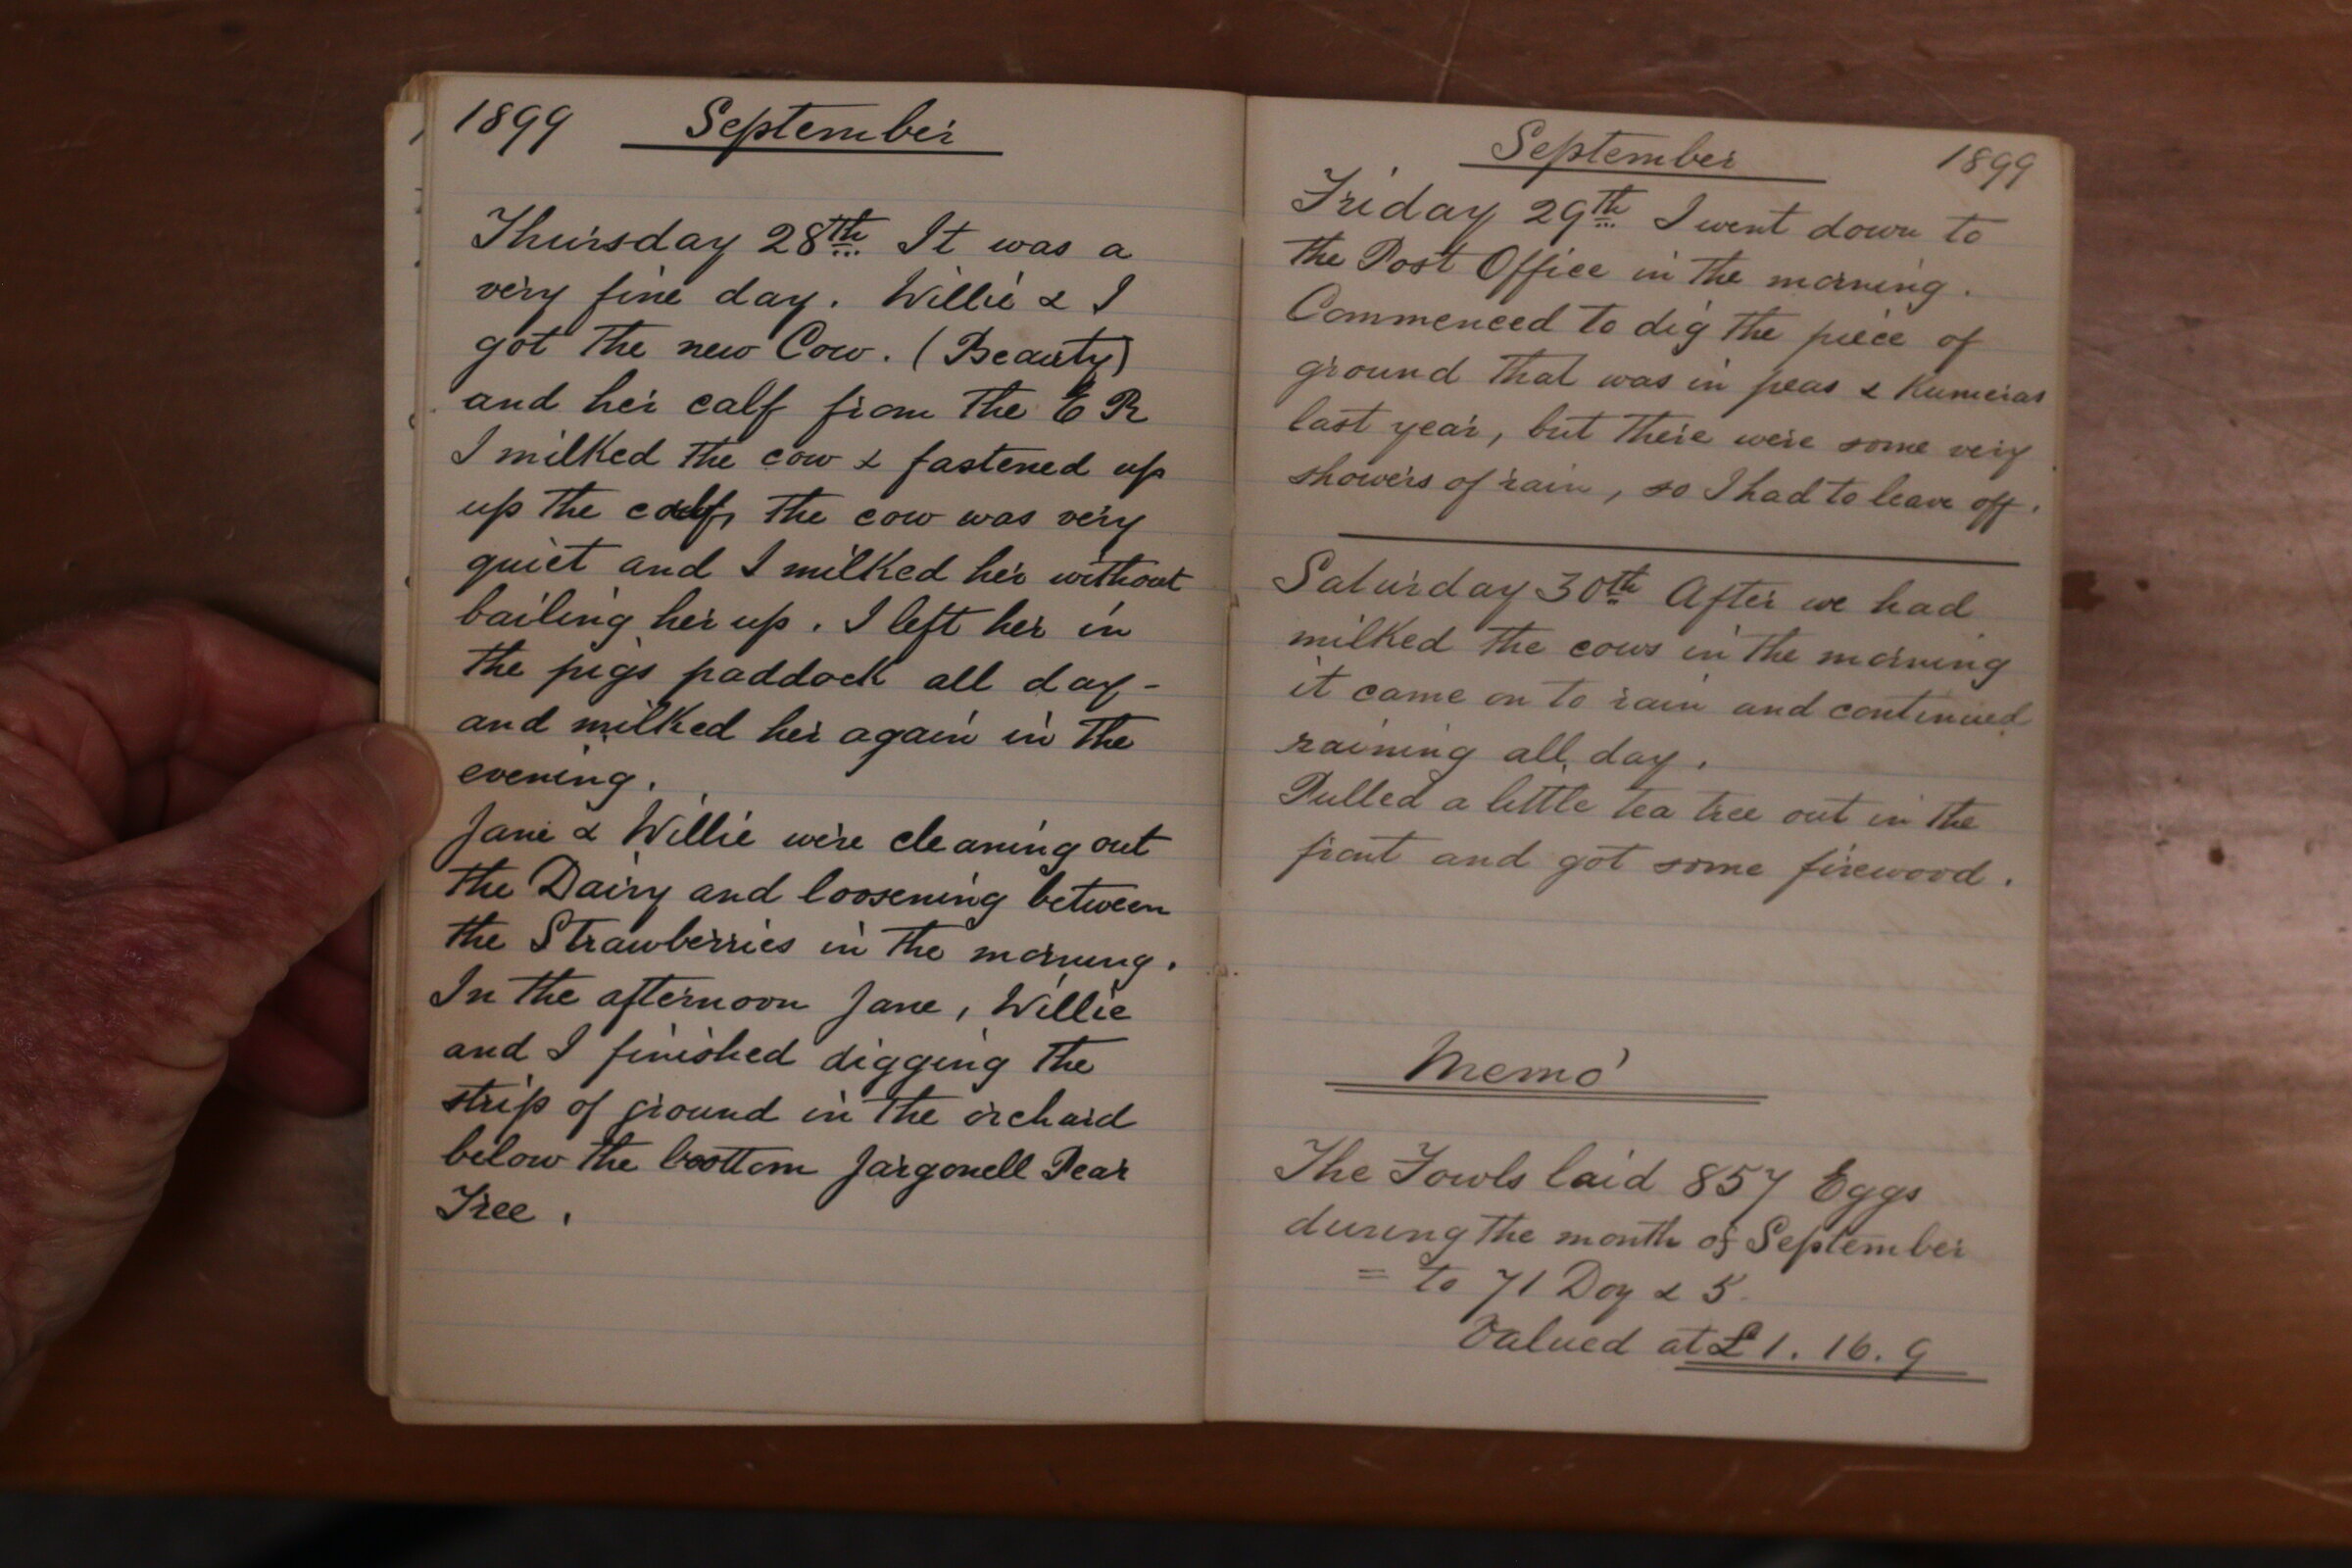 1899 September
Thursday 28th It was a
very fine day. Willie & I
got the new Cow. (Beauty)
and her calf from the E R
I milked the cow & fastened up
up the calf, the cow was very
quiet and I milked her without
bailing her up. I left her in
the pigs paddock all day -
and milked her again in the
evening.
Jane & Willie were cleaning out
the Dairy and loosening between
the Strawberries in the morning.
In the afternoon Jane, Willie
and I finished digging the
strip of ground in the orchard
below the bottom Jargonell Pear
Tree.
September 1899
Friday 29th I went down to
the Post Office in the morning.
Commenced to dig the piece of
ground that was in peas & Kumeras
last year, but there were some very
showers of rain, so I had to leave off.
Saturday 30th After we had
milked the cows in the morning
it came on to rain and continued
raining all day.
Pulled a little tea tree out in the
front and got some firewood.
Memo
The Fowls laid 857 Eggs
during the month of September
= to 71 Doz & 5
Valued at £1. 16. 9